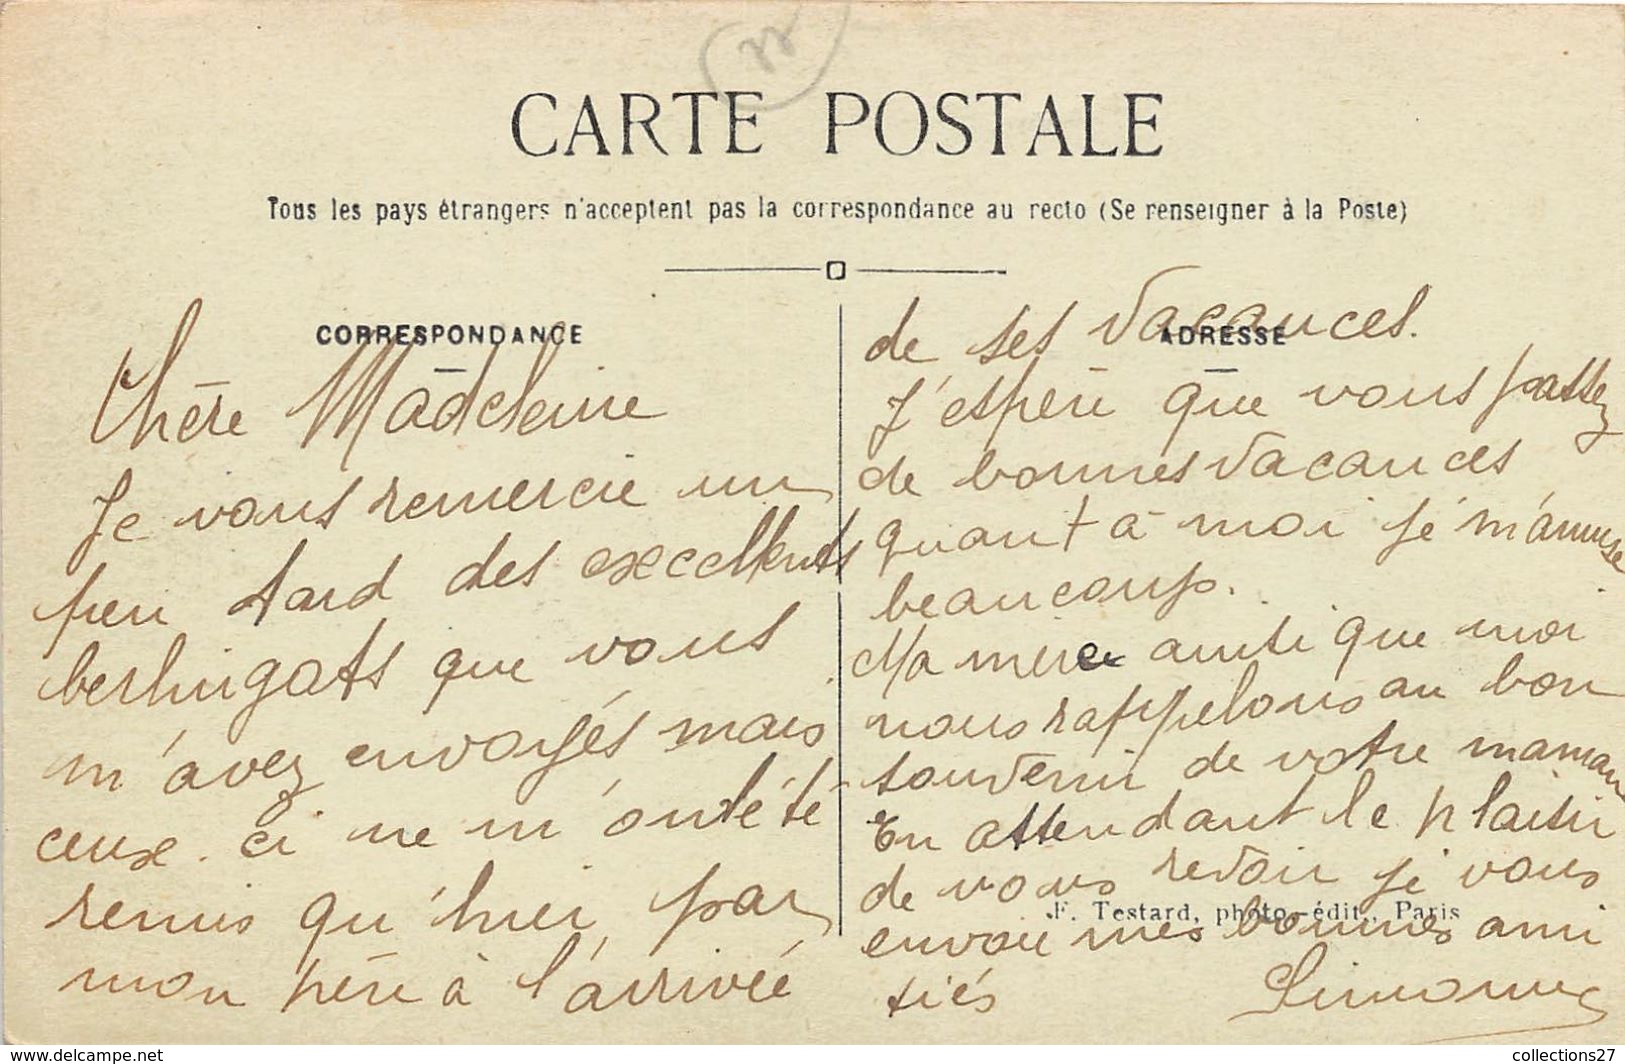 CARTE POSTALE
Tous les pays étrangers n'acceptent pas la correspondance au recto (Se renseigner à la Poste)
CORRESPONDANCE
Chère Madeleine
Je vous remercie un
peu tard des excellents
berlingots que vous
m'avez envoyés mais
ceux-ci ne m'ont été
remis qu'hier par
mon père à l'arrivée
ADRESSE
de ses vacances.
J'espère que vous passez
de bonnes vacances
quant à moi je m'amuse
beaucoup.
Ma mère ainsi que moi
nous rappelons au bon
souvenir de votre maman
En attendant le plaisir
de vous revoir je vous
envoie mes bonnes ami
tiés Simonne
F. Testard, photo-édit., Paris
www.delcampe.net
collections27